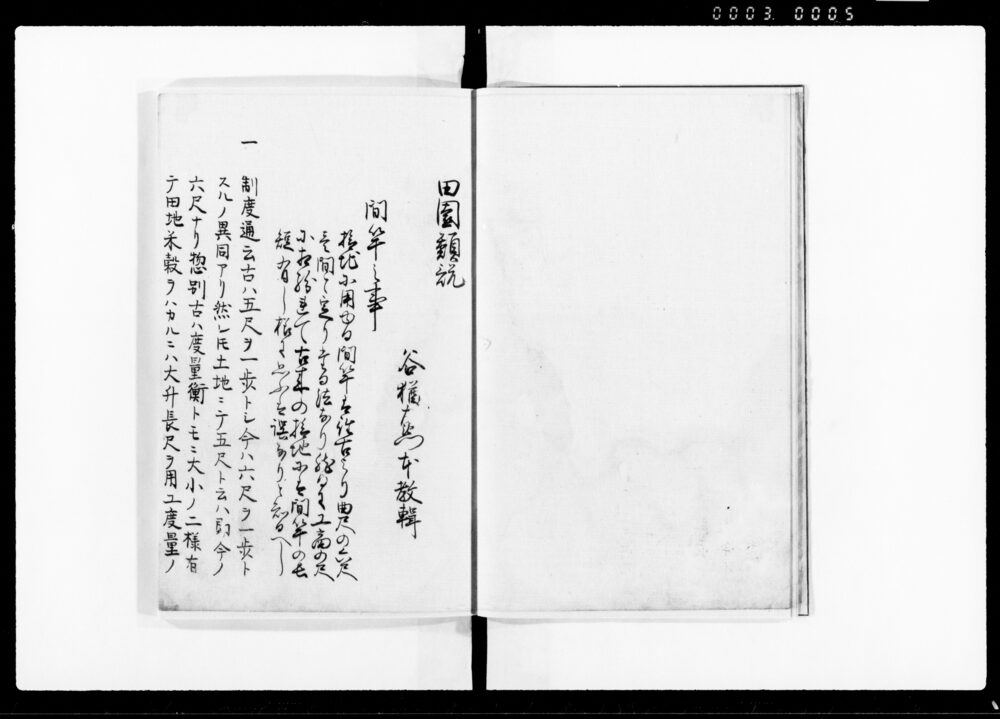 0003 0005
田園類説
谷 本教輯
間竿之事
検地に用ゆる間竿は往古より曲尺の六尺
を間と定りたる法なり
に 古来の検地には間竿の長
短有し様に思ふは誤なりと知るへし
一 制度通云古ハ五尺ヲ一歩トシ今ハ六尺ヲ一歩ト
スルノ異同アリ然レ𪜈土地ニテ五尺ト云ハ即今ノ
六尺ナリ惣別古ハ度量衡トモニ大小ノ二様有
テ田地米穀ヲハカルニハ大升長尺ヲ用エ度量ノ